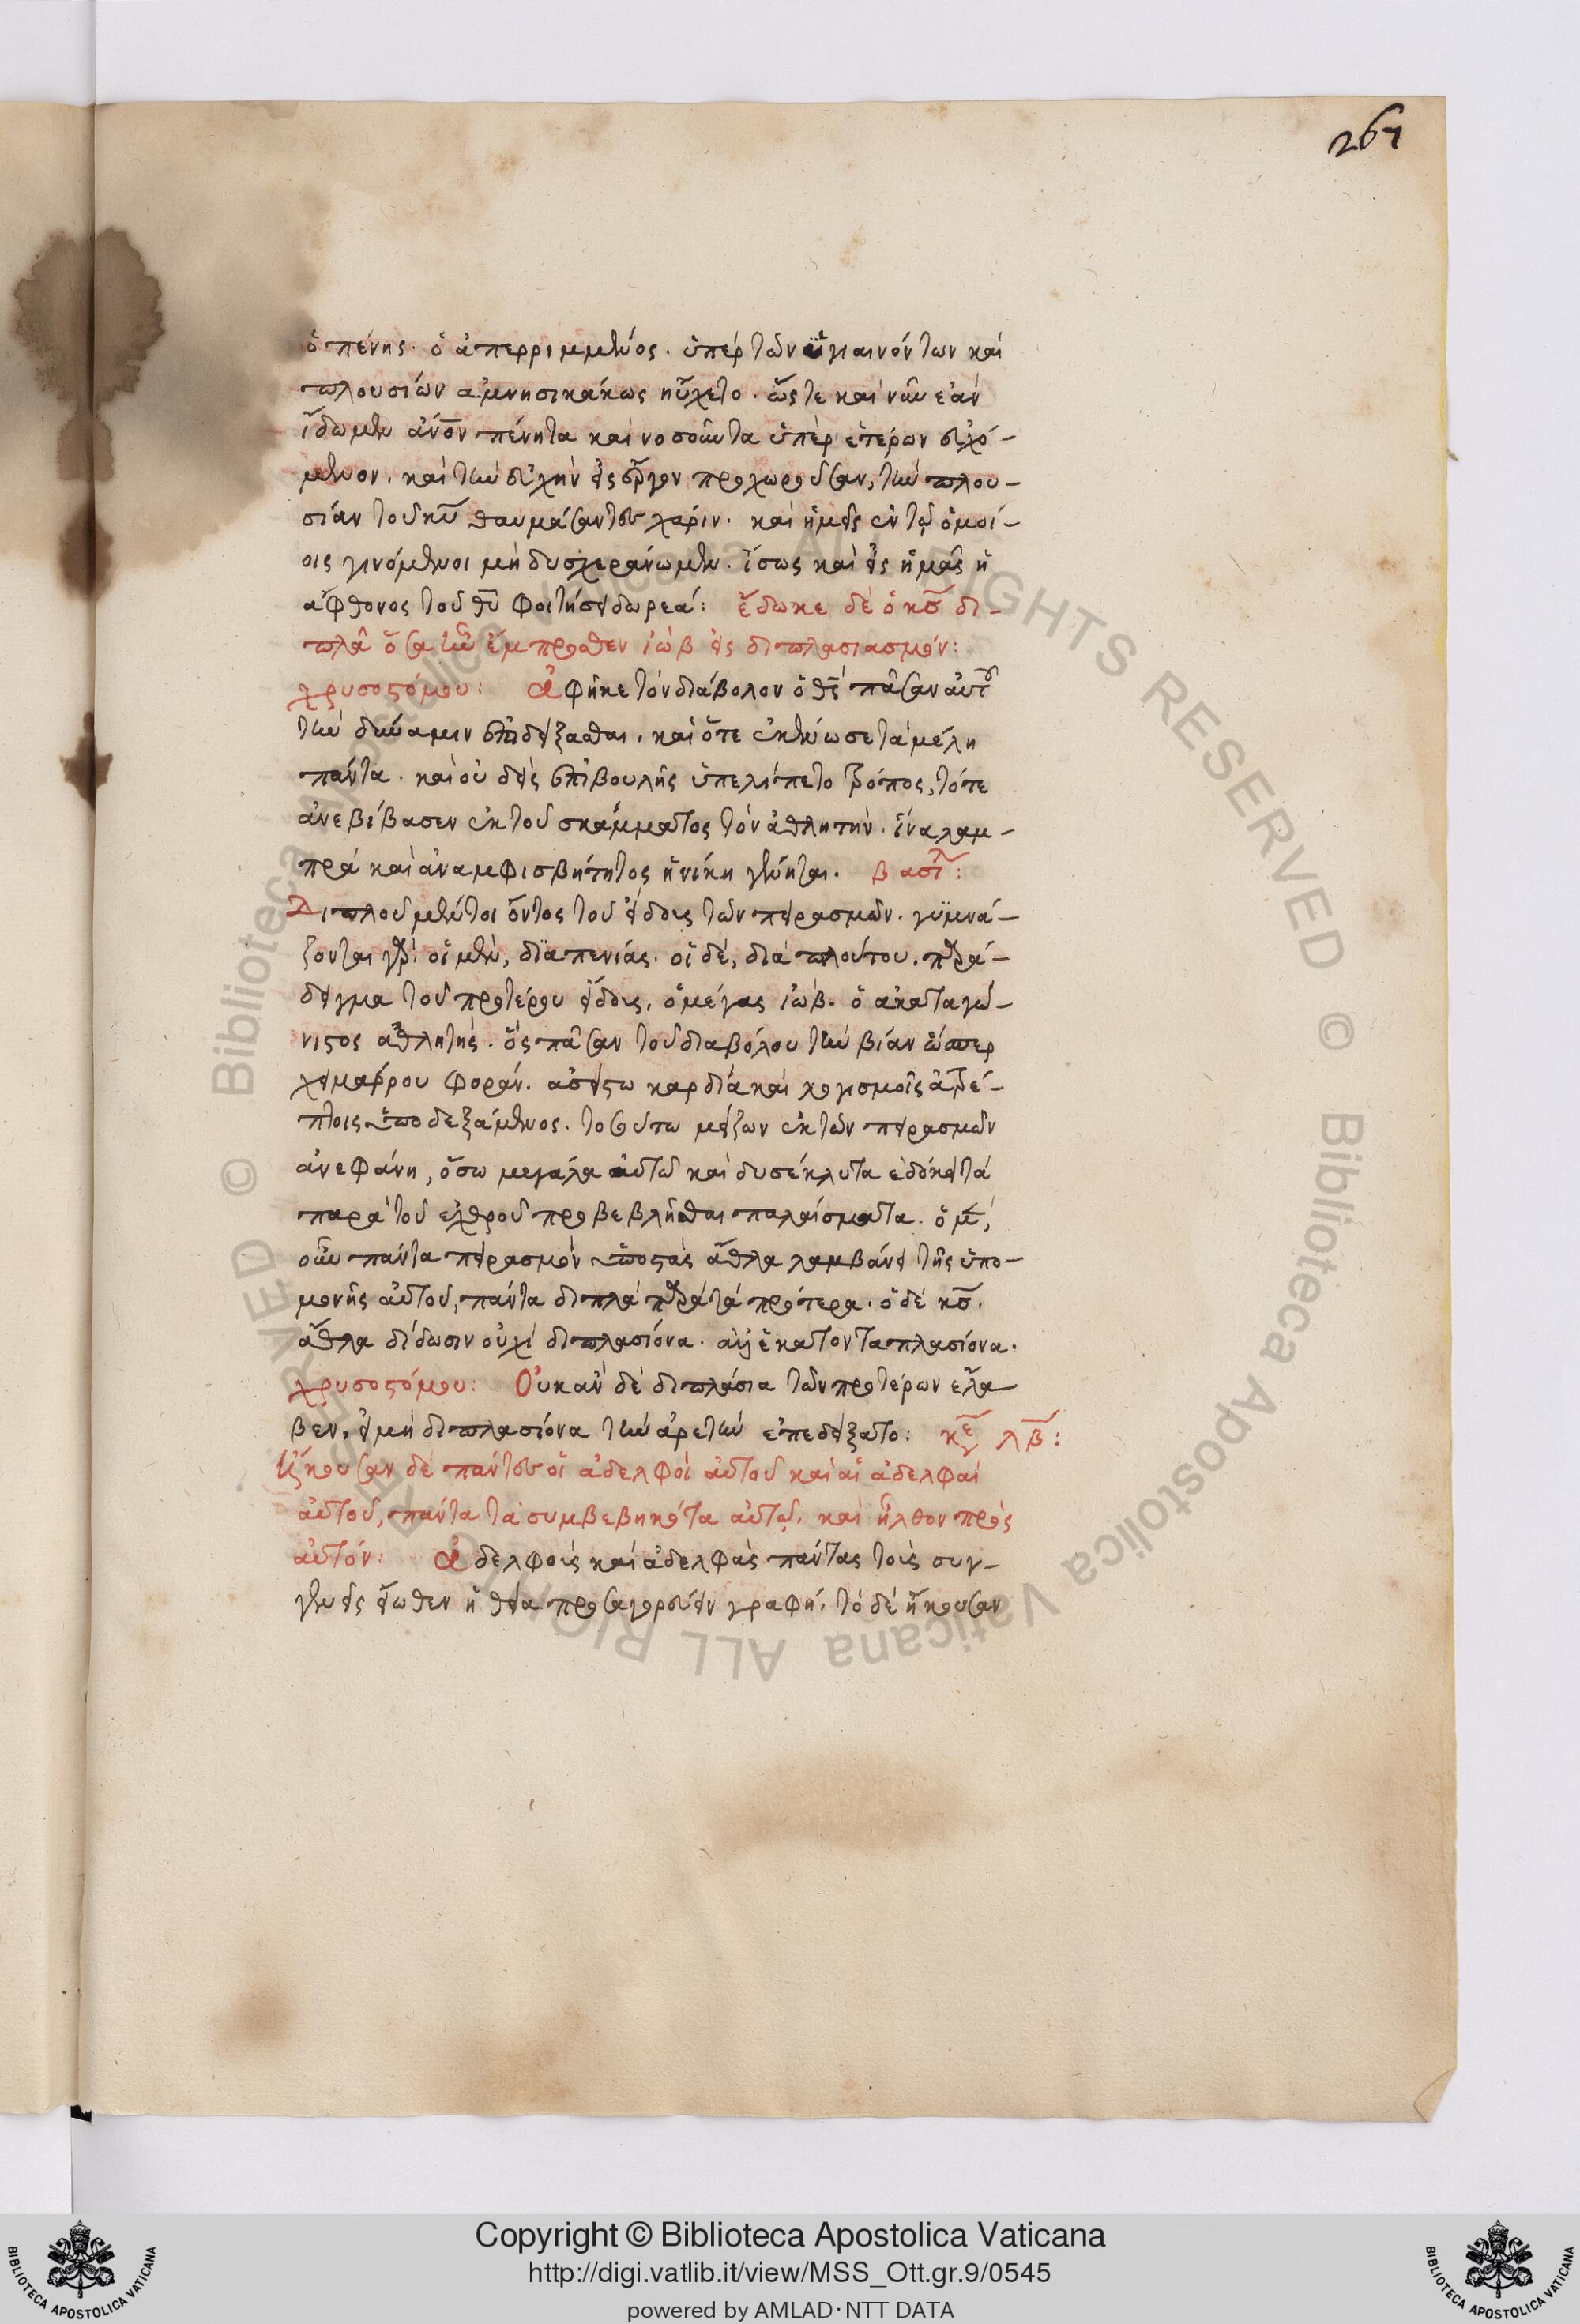 267
ὁ πένης. ὁ ἀπερριμμένος. ὑπὲρ τῶν ὑγιαινόντων καὶ
πλουσίων ἀμνησικάκως ηὔχετο. ὥστε καὶ νῦν ἐὰν
ἴδωμεν ἀνον πένητα καὶ νοσοῦντα ὑπὲρ ἑτέρων εὐχό-
μενον. καὶ τὴν εὐχὴν εἰς ἔργον προχωροῦσαν, τὴν πλου-
σίαν τοῦ κυ θαυμάσαντες χάριν. καὶ ἡμεῖς ἐν τῷ ὁμοί-
οις γινόμενοι μὴ δυσχεραίνωμεν. ἴσως καὶ εἰς ἡμᾶς ἡ
ἄφθονος τοῦ θυ φοιτήσει δωρεά: ἔδωκε δὲ ὁ κς δι-
πλᾶ ὅσα ἦν ἔμπροσθεν ἰὼβ εἰς διπλασιασμόν:
χρυσοστόμου: ἀφῆκε τὸν διάβολον ὁ θς πᾶσαν αὐτοῦ
τὴν δύναμιν ἐπιδείξασθαι. καὶ ὅτε ἐκένωσε τὰ μέλη
πάντα. καὶ οὐδεὶς ἐπιβουλῆς ὑπελίπετο τρόπος, τότε
ἀνεβίβασεν ἐκ τοῦ σκάμματος τὸν ἀθλητήν. ἵνα λαμ-
πρὰ καὶ ἀναμφισβήτητος ἡ νίκη γένηται. βασιλ:
Διπλοῦ μέντοι ὄντος τοῦ εἴδους τῶν πειρασμῶν. γυμνά-
ζονται γὰρ οἱ μὲν, διὰ πενίας. οἱ δὲ, διὰ πλούτου. παρά-
δειγμα τοῦ προτέρου εἴδους, ὁ μέγας ἰώβ. ὁ ἀκαταγώ-
νιστος ἀθλητής. ὃς πᾶσαν τοῦ διαβόλου τὴν βίαν ὥσπερ
χειμάρρου φοράν. ἀσείστω καρδία καὶ λογισμοῖς ἀτρέ-
πτοις ὑποδεξάμενος. τοσούτω μείζων ἐκ τῶν πειρασμῶν
ἀνεφάνη, ὅσω μεγάλα αὐτῶ καὶ δυσέκλυτα ἐδόκει τὰ
παρὰ τοῦ ἐχθροῦ προβεβλῆσθαι παλαίσματα. ὁ μὲν
οὖν πάντα πειρασμὸν ὑποστὰς ἆθλα λαμβάνει τῆς ὑπο-
μονῆς αὐτοῦ, πάντα διπλᾶ παρὰ τὰ πρότερα. ὁ δὲ κς.
ἆθλα δίδωσιν οὐχὶ διπλασίονα. ἀλλ' ἑκατονταπλασίονα.
χρυσοστόμου: Οὐκ ἂν δὲ διπλάσια τῶν προτέρων ἔλα-
βεν, εἰ μὴ διπλασίονα τὴν ἀρετὴν ἐπεδείξατο: κε λβ:
Ἤκουσαν δὲ πάντες οἱ ἀδελφοὶ αὐτοῦ καὶ αἱ ἀδελφαὶ
αὐτοῦ, πάντα τὰ συμβεβηκότα αὐτῷ. καὶ ἦλθον πρὸς
αὐτόν: ἀδελφοὺς καὶ ἀδελφὰς πάντας τοὺς συγ-
γενεῖς εἴωθεν ἡ θεία προσαγορεύειν γραφή. τὸ δὲ ἤκουσαν
Copyright © Biblioteca Apostolica Vaticana
http://digi.vatlib.it/view/MSS_Ott.gr.9/0545
powered by AMLAD·NTT DATA
BIBLIOTECA APOSTOLICA VATICANA
BIBLIOTECA APOSTOLICA VATICANA
© Biblioteca Apostolica Vaticana ALL RIGHTS RESERVED
© Biblioteca Apostolica Vaticana ALL RIGHTS RESERVED